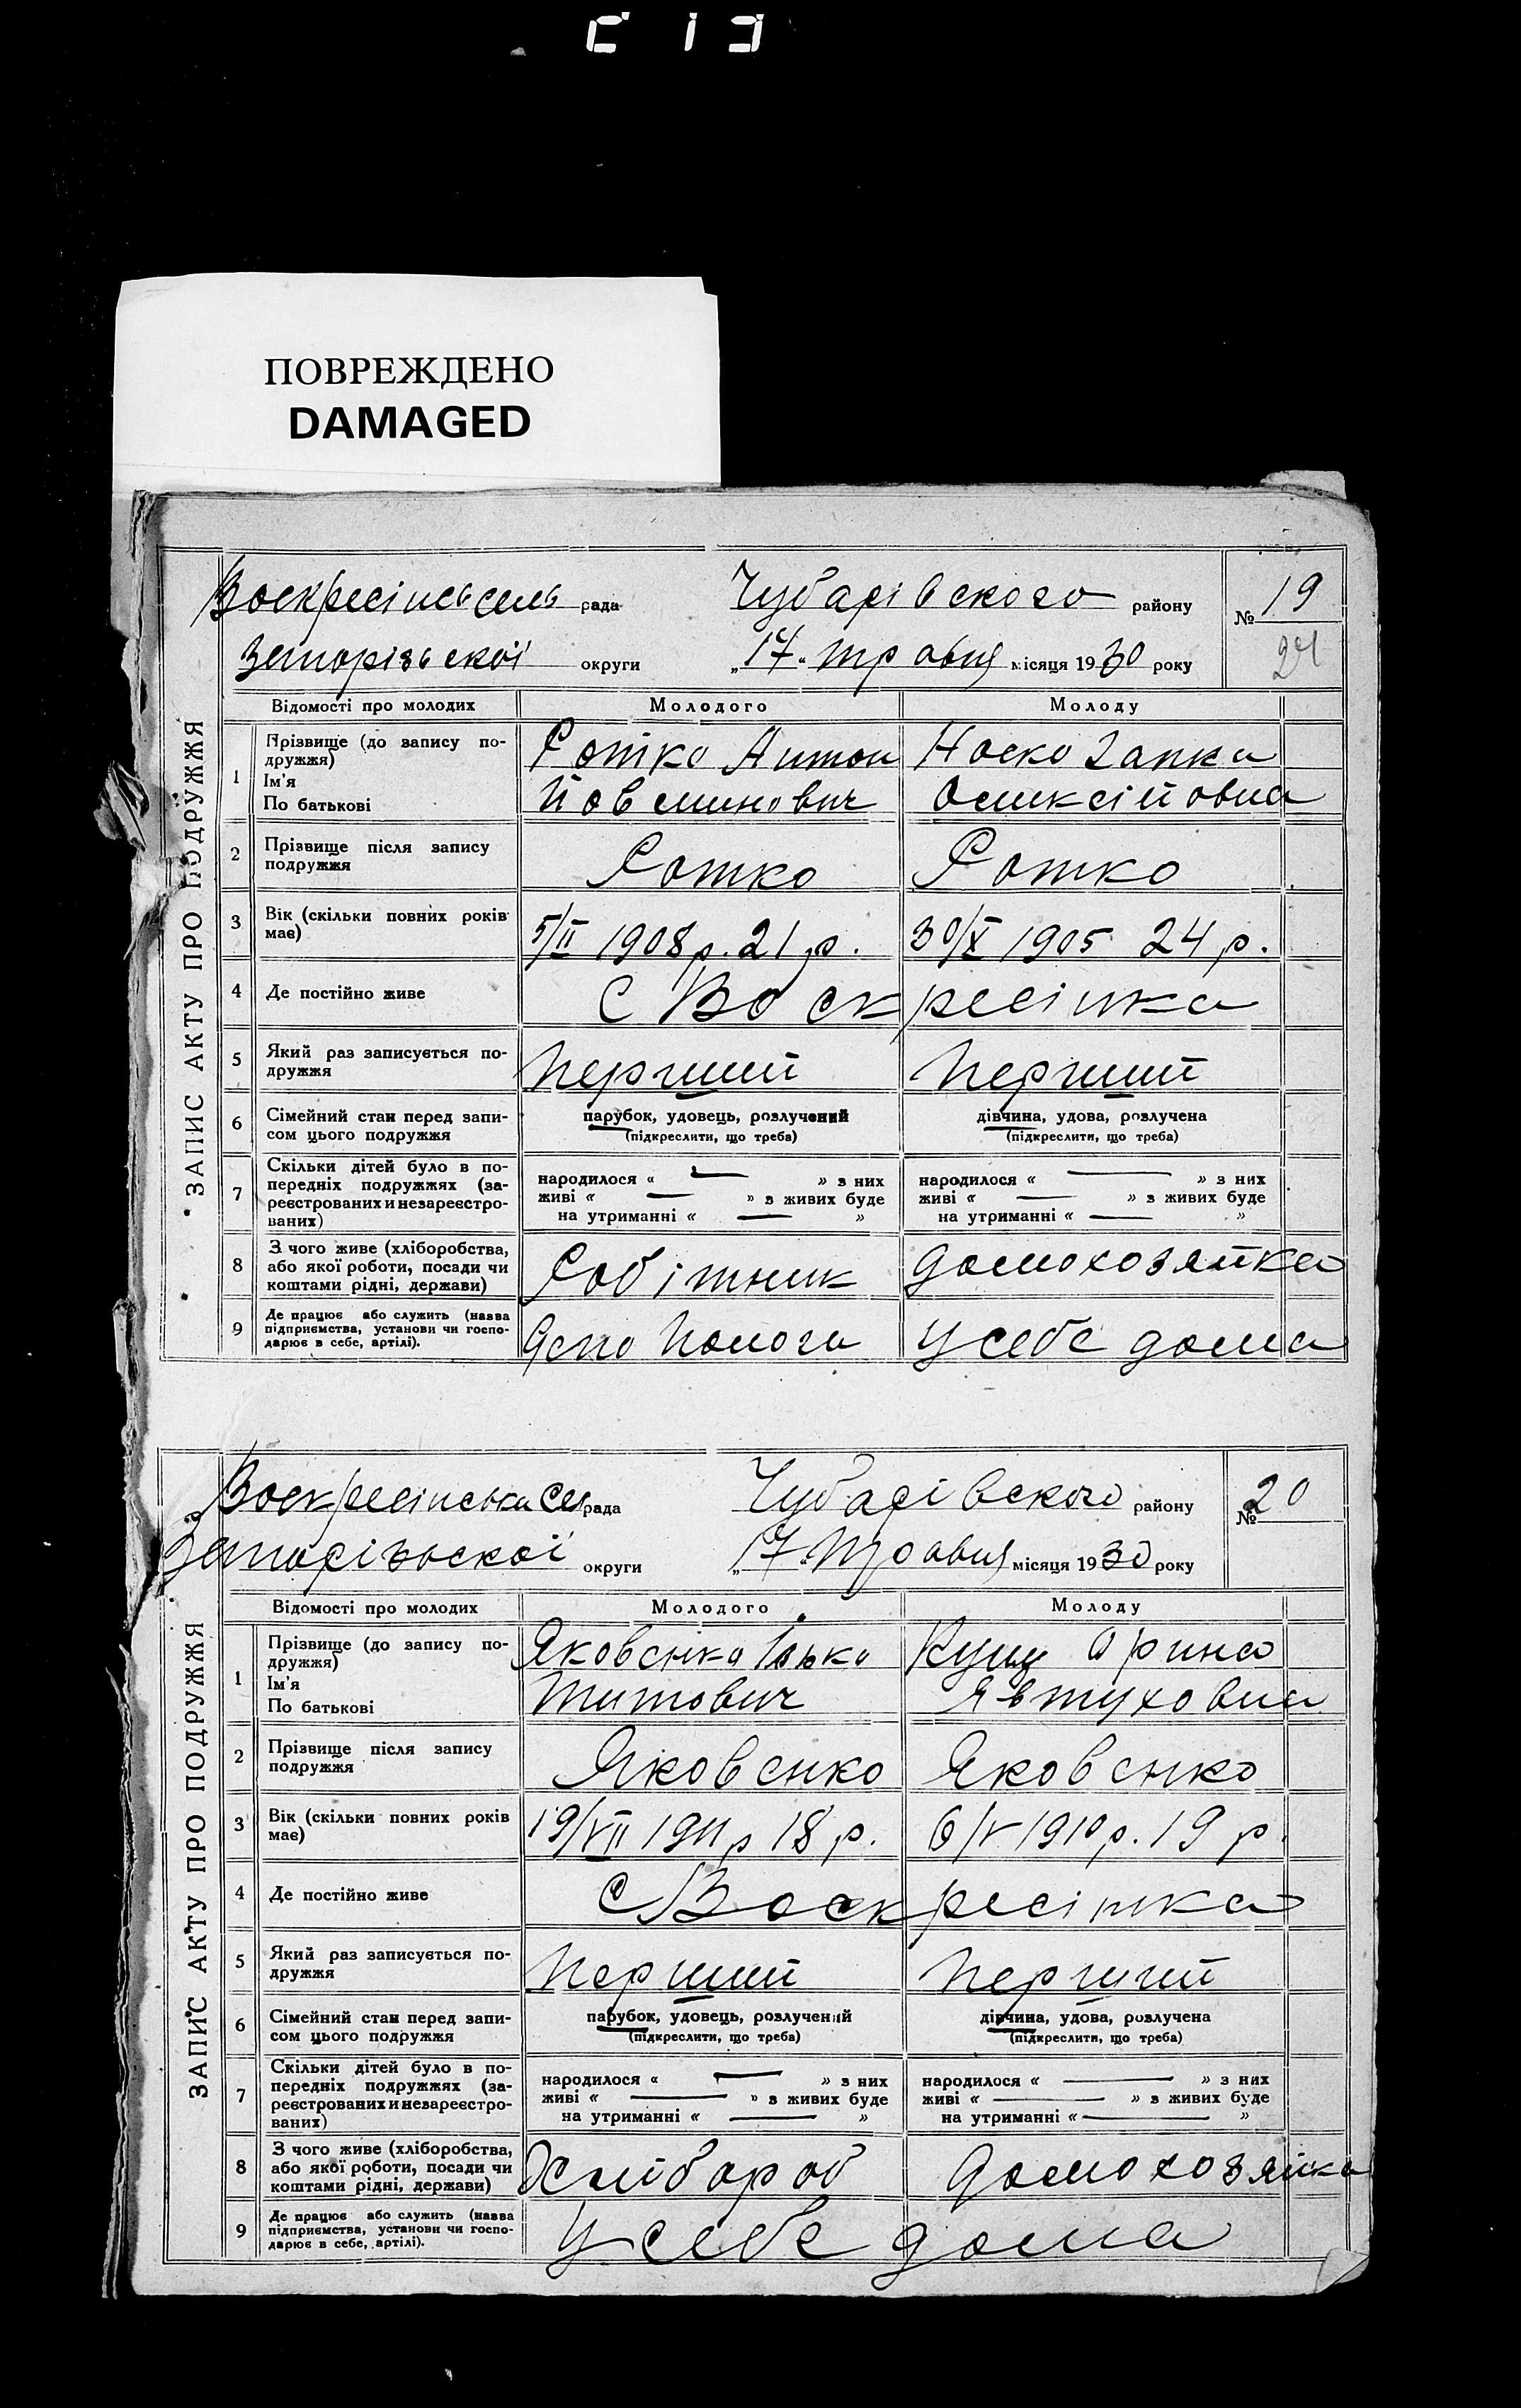 ПОВРЕЖДЕНО
DAMAGED
ЗАПИС АКТУ ПРО ПОДРУЖЖЯ
Воскресінсь сель рада Чубарівского району № 19
Запорізьскої округи „17" травня місяця 1930 року 24
Відомості про молодих Молодого Молоду
1 Прізвище (до запису по-
дружжя)
Ім'я
По батькові
Ротко Антон
Йовминович
Носко Ганка
Оликсійовна
2 Прізвище після запису
подружжя
Ротко Ротко
3 Вік (скільки повних років
має)
5/II 1908 р. 21 р. 30/X 1905 24 р.
4 Де постійно живе С Воскресінка
5 Який раз записується по-
дружжя
Перший Перший
6 Сімейний стан перед запи-
сом цього подружжя
парубок, удовець, розлучений
(підкреслити, що треба)
дівчина, удова, розлучена
(підкреслити, що треба)
7 Скільки дітей було в по-
передніх подружжях (за-
реєстрованих и незареєстро-
ваних)
народилося « — » з них
живі « — » з живих буде
на утриманні « — »
народилося « — » з них
живі « — » з живих буде
на утриманні « — »
8 З чого живе (хліборобства,
або якої роботи, посади чи
коштами рідні, держави)
Робітник домохозяйка
9 Де працює або служить (назва
підприємства, установи чи госпо-
дарює в себе, артілі).
Депо Пологи У себе дома
ЗАПИС АКТУ ПРО ПОДРУЖЖЯ
Воскресінська сел рада Чубарівского району № 20
Запорізьскої округи „17" Травня місяця 1930 року
Відомості про молодих Молодого Молоду
1 Прізвище (до запису по-
дружжя)
Ім'я
По батькові
Яковенко Ілько
Титович
Кущ Орина
Явтуховна
2 Прізвище після запису
подружжя
Яковенко Яковенко
3 Вік (скільки повних років
має)
19/VII 1911 р 18 р. 6/V 1910 р. 19 р.
4 Де постійно живе С Воскресінка
5 Який раз записується по-
дружжя
Перший Перший
6 Сімейний стан перед запи-
сом цього подружжя
парубок, удовець, розлучений
(підкреслити, що треба)
дівчина, удова, розлучена
(підкреслити, що треба)
7 Скільки дітей було в по-
передніх подружжях (за-
реєстрованих и незареєстро-
ваних)
народилося « — » з них
живі « — » з живих буде
на утриманні « — »
народилося « — » з них
живі « — » з живих буде
на утриманні « — »
8 З чого живе (хліборобства,
або якої роботи, посади чи
коштами рідні, держави)
Хлибороб Домохозяйка
9 Де працює або служить (назва
підприємства, установи чи госпо-
дарює в себе, артілі).
У себе дома